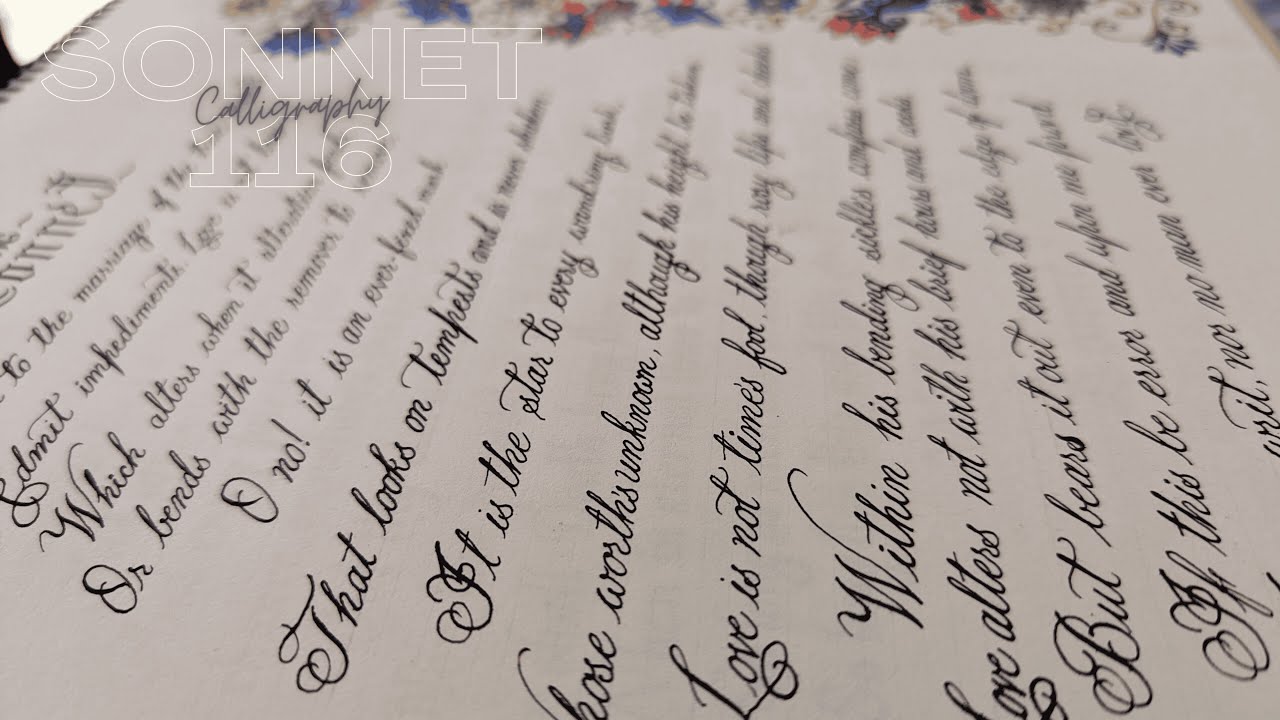 SONNET
Calligraphy
116
to the marriage of
Admit impediments. Love is
Which alters when it
Or bends with the remover to
O no! it is an ever-fixed mark
That looks on tempests and is never shaken
It is the star to every wandering bark
worth's unknown, although his height be taken
Love is not time's fool, though rosy lips and cheeks
Within his bending sickle's compass come
Love alters not with his brief hours and
But bears it out even to the edge of doom
If this be error and upon me proved
writ, nor no man ever loved